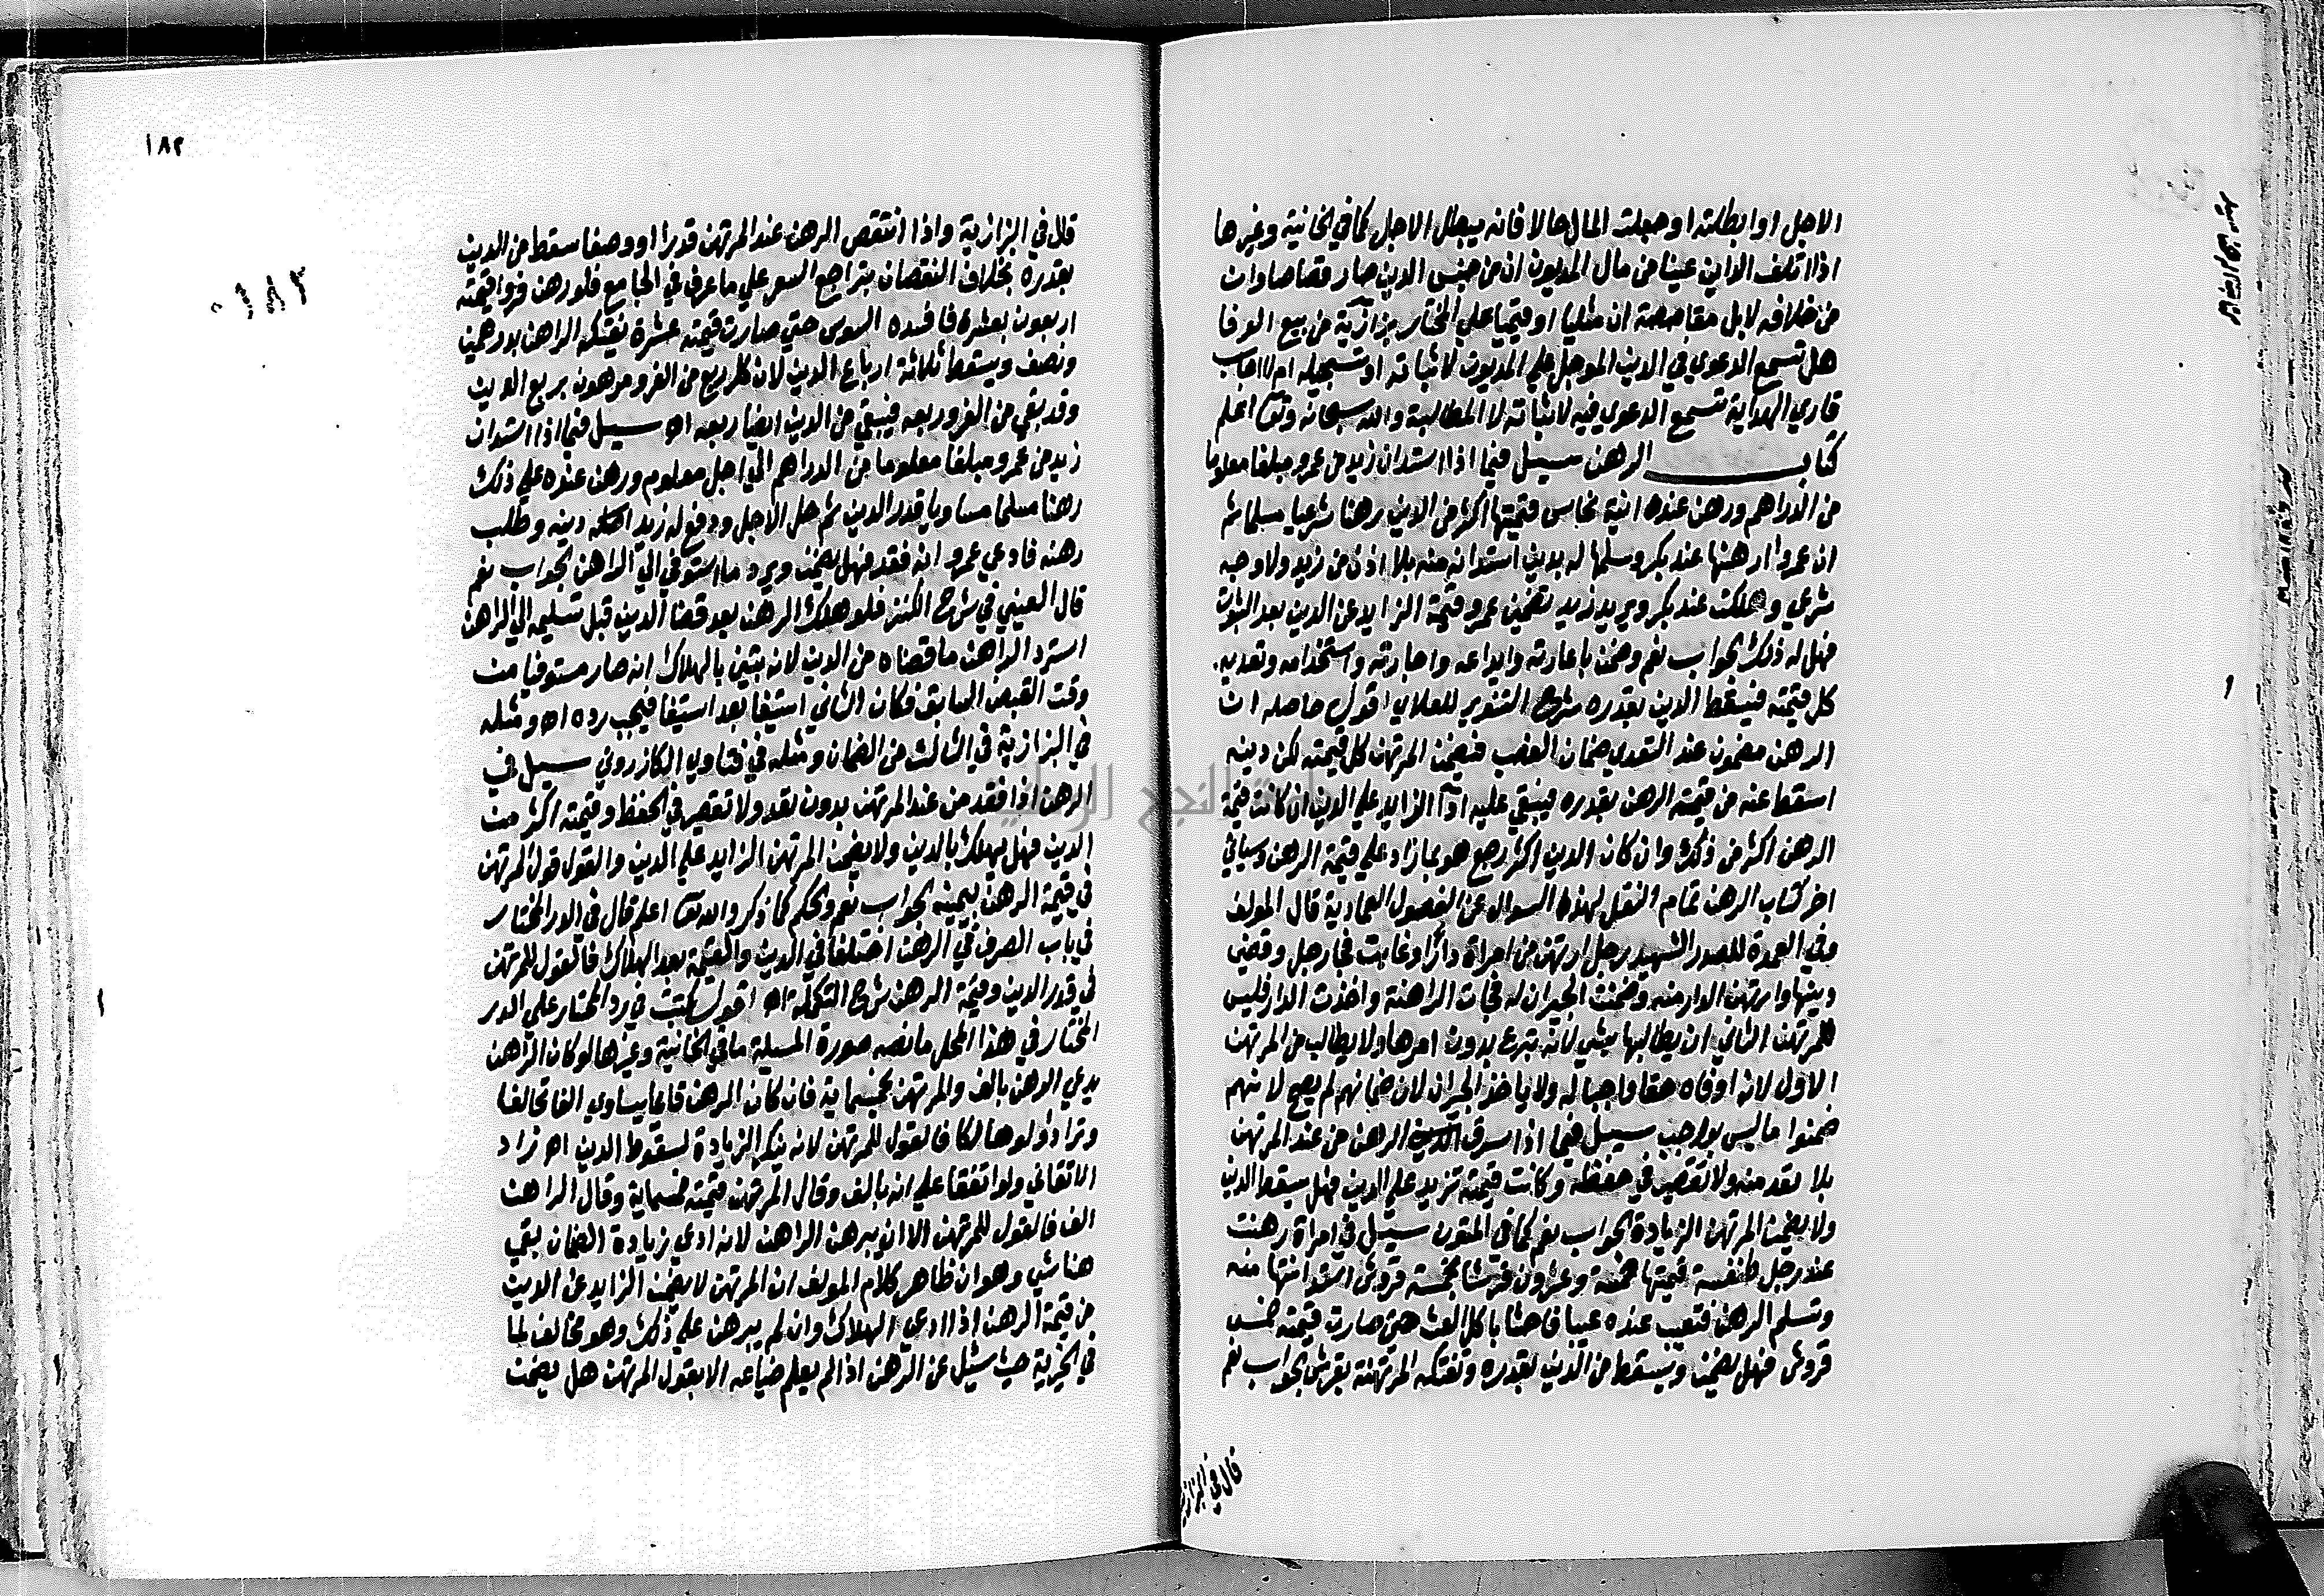 الاجل او ابطلته او جعلت المال حالا فانه يبطل الاجل كما في الخانية وغيرها
اذا اتلف الداين عينا من مال المديون ان من جنس الدين صار قصاصا وان
من خلافه لا بل مقاصصة ان مثليا او قيميا علي المختار بزازية من بيع الوفا
هل تسمع الدعوي في الدين الموجل علي المديون لاثباته او تسجيله ام لا اجاب
قاري الهداية تسمع الدعوي فيه لاثباته لا المطالبة والله سبحانه وتعا اعلم
كتاب الرهن سيل فيما اذا استدان زيد من عمرو مبلغا معلوما
من الدراهم ورهن عنده انية نحاس قيمتها اكثر من الدين رهنا شرعيا مسلما ثم
ان عمروا ارهنها عند بكر وسلمها له بدين استدانه منه بلا اذن من زيد ولا وجه
شرعي وهلكت عند بكر ويريد زيد تضمين عمرو قيمة الزايد عن الدين بعد الثبوت
فهل له ذلك الجواب نعم وضمن باعارته وايداعه واجارته واستخدامه وتعديه
كل قيمته فيسقط الدين بقدره شرح التنوير للعلاي اقول حاصله ان
الرهن مضمون عند التعدي ضمان الغصب فيضمن المرتهن كل قيمته لكن دينه
اسقط عنه من قيمة الرهن بقدره فيبقي عليه اذا الزايد علي الدين ان كانت قيمة
الرهن اكثر من ذلك وان كان الدين اكثر رجع هو بما زاد علي قيمة الرهن وسياتي
اخر كتاب الرهن تمام النقل لهذه السوال عن الفصول العمادية قال المولف
وفي العمدة للصدر الشهيد رجل ارتهن من امراة دارا وغابت فجا رجل وقضي
دينها وارتهن الدار منه وضمنت الجيران له فجات الراهنة واخذت الدار فليس
للمرتهن الثاني ان يطالبها بشي لانه تبرع بدون امرها ولا يطالب من المرتهن
الاول لانه اوفاه حقا واجبا له ولا ياخذ الجيران لان ضمانهم لم يصح لانهم
ضمنوا ما ليس بواجب سيل فيما اذا سرق الرهن من عند المرتهن
بلا تعد منه ولا تقصير في حفظه وكانت قيمته تزيد علي الدين فهل يسقط الدين
ولا يضمن المرتهن الزيادة الجواب نعم كما في المتون سيل في امراة رهنت
عند رجل طنفسة قيمتها خمسة وعشرون قرشا بخمسة قروش استدانتها منه
وتسلم الرهن فتعيب عنده عيبا فاحشا باكل العث حتي صارت قيمته خمس
قروش فهل يضمن ويسقط من الدين بقدره وتفتكه المرتهنة بقرش الجواب نعم
قال في البزازية
١٨٢
قال في البزازية واذا انتقص الرهن عند المرتهن قدرا او وصفا سقط من الدين
بقدره بخلاف النقصان بتراجع السعر علي ما عرف في الجامع فلو رهن فروا قيمته
اربعون بعشرة فافسده السوس حتي صارت قيمته عشرة يفتكه الراهن بدرهمين
ونصف ويسقط ثلاثة ارباع الدين لان كل ربع من الفرو مرهون بربع الدين
وقد بقي من الفرو ربعه فيبقي من الدين ايضا ربعه اه سيل فيما اذا استدان
زيد من عمرو مبلغا معلوما من الدراهم الي اجل معلوم ورهن عنده علي ذلك
رهنا مسلما مساويا قدر الدين ثم حل الاجل ودفع له زيد دينه وطلب
رهنه فادعي عمرو انه فقد فهل يضمن ويرد ما استوفي الي الراهن الجواب نعم
قال العيني في شرح الكنز فلو هلك الرهن بعد قضا الدين قبل تسليمه الي الراهن
استرد الراهن ما قضاه من الدين لانه يتبين بالهلاك انه صار مستوفيا من
وقت القبض السابق فكان الثاني استيفا بعد استيفا فيجب رده اه ومثله
في البزازية في الثالث من الضمان ومثله في فتاوي الكازروني سيل في
الرهن اذا فقد من عند المرتهن بدون تعد ولا تقصير في الحفظ وقيمته اكثر من
الدين فهل يهلك بالدين ولا يضمن المرتهن الزايد علي الدين والقول قول المرتهن
في قيمة الرهن بيمينه الجواب نعم والحكم كما ذكر والله تعا اعلم قال في الدر المختار
في باب التصرف في الرهن اختلفا في الدين والقيمة بعد الهلاك فالقول للمرتهن
في قدر الدين وقيمة الرهن شرح التكملة اه اقول كتبت في رد المحتار علي الدر
المختار في هذا المحل ما نصه صورة المسيلة ما في الخانية وغيرها لو كان الراهن
يدعي الرهن بالف والمرتهن بخمسماية فان كان الرهن قايما يساوي الفا تحالفا
وترادا ولو هالكا فالقول للمرتهن لانه ينكر الزيادة لسقوط الدين اه زاد
الاتقاني ولو اتفقا علي انه بالف وقال المرتهن قيمته خمسماية وقال الراهن
الف فالقول للمرتهن الا ان يبرهن الراهن لانه ادعي زيادة الضمان بقي
هنا شي وهو ان ظاهر كلام المولف ان المرتهن لا يضمن الزايد عن الدين
من قيمة الرهن اذا ادعي الهلاك وان لم يبرهن علي ذلك وهو مخالف لما
في الخيرية حيث سيل عن الرهن اذا لم يعلم ضياعه الا بقول المرتهن هل يضمن